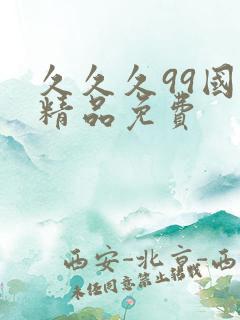 久久久99國
精品免費
西安-北京-西
未任同意禁止转载